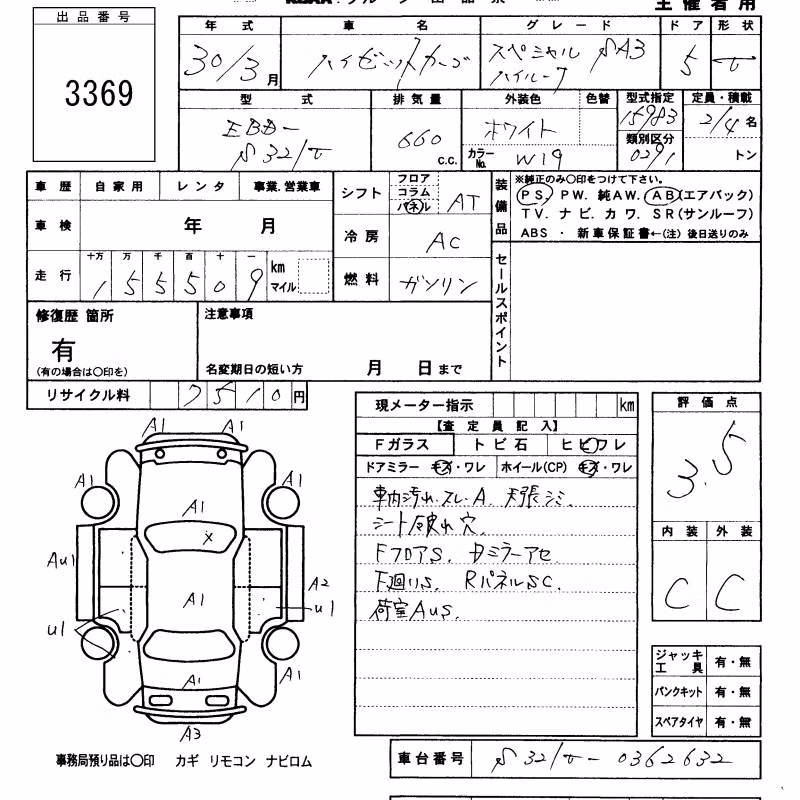 主 催 者 用
出 品 番 号
3369
年 式 車 名 グ レ ー ド ド ア 形 状
30/3月 ハイゼットカーゴ スペシャル SA3 5 V
ハイルーフ
型 式 排 気 量 外装色 色替 型式指定 定員・積載
EBD- 660 c.c. ホワイト 15983 2/4 名
S321V 類別区分
カラーNo. W19 0291 トン
車 歴 自 家 用 レ ン タ 事業.営業車
シフト フロア コラム パネル AT
装備品 ※純正のみ〇印をつけて下さい。
PS. PW. 純AW. AB(エアバック)
TV. ナビ. カワ. SR(サンルーフ)
ABS ・ 新車保証書←(注) 後日送りのみ
車 検 年 月
冷 房 AC
走 行 十万 万 千 百 十 一 km マイル
1 5 5 5 0 9
燃 料 ガソリン
セールスポイント
修復歴 箇所 注意事項
有
(有の場合は〇印を) 名変期日の短い方 月 日まで
リサイクル料 7510円
現メーター指示 km
【査 定 員 記 入】
Fガラス ト ビ 石 ヒ ビワレ
ドアミラー キズ・ワレ ホイール(CP) キズ・ワレ
車内汚れ.スレ.A. 天張シミ
シート破れ穴
FフロアS. ドミラーアセ
下廻りS. RパネルSC.
荷室AuS.
評 価 点
3.5
内 装 外 装
C C
A1 A1
A1 A1
A1
X
Au1
A1
A2
U1
U1
A1
A1 A1
A3
ジャッキ 工 具 有・無
パンクキット 有・無
スペアタイヤ 有・無
事務局預り品は〇印 カギ リモコン ナビロム
車台番号 S321V-0362632